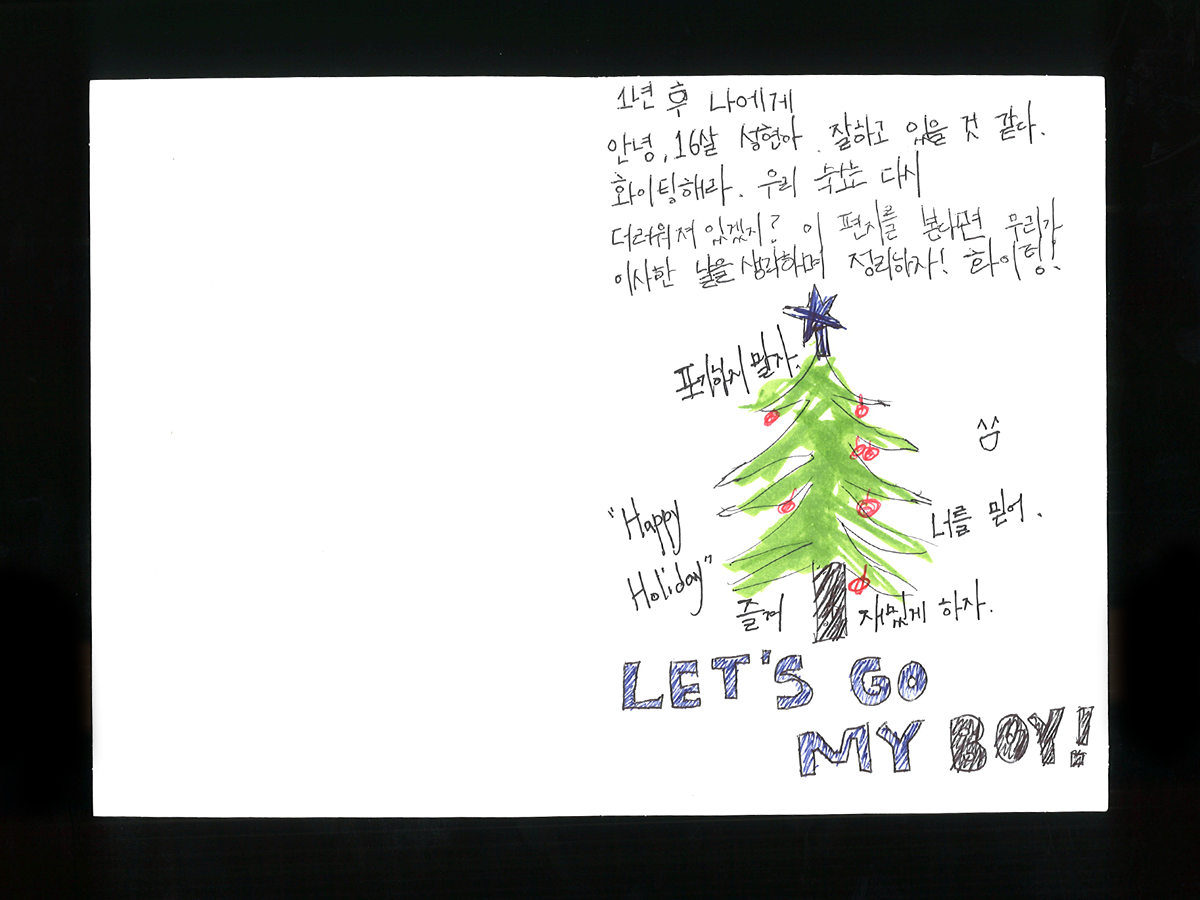 1년 후 나에게
안녕, 16살 성현아. 잘하고 있을 것 같다.
화이팅해라. 우리 숙소는 다시
더러워져 있겠지? 이 편지를 본다면 우리가
이사한 날을 생각하며 정리하자! 화이팅!
포기하지 말자.
"Happy
Holiday"
너를 믿어.
즐겨 재밌게 하자.
LET'S GO
MY BOY!